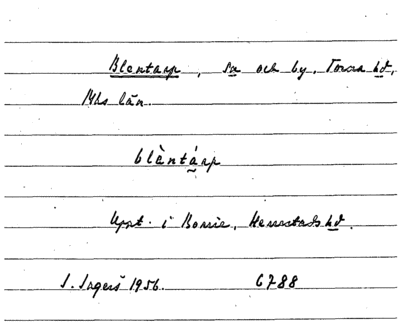 Blentarp, sn och by, Torna hd,
Mhs län.
blèntá̰rp
Uppt. i Borrie, Herrestads hd.
S. Ingers 1956. 6788